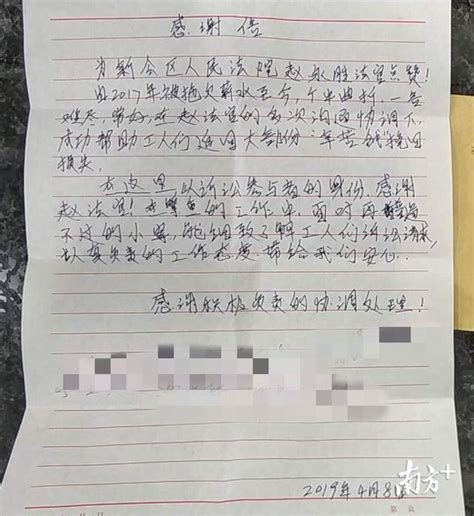 感谢信
为新会区人民法院赵永胜法官点赞!
由2017年被拖欠薪水至今,个中曲折,一言
难尽,幸好,在赵法官的多次沟通协调下,
成功帮助工人们追回大部份血汗钱,挽回
损失。
在这里以诉讼参与者的身份,感谢
赵法官!在繁重的工作中,面对再
不过的小案,能细致了解工人们诉讼请求,
认真负责的工作态度,带给我们安心。
感谢积极负责的协调处理!
2019年4月8日
南方+
第 页